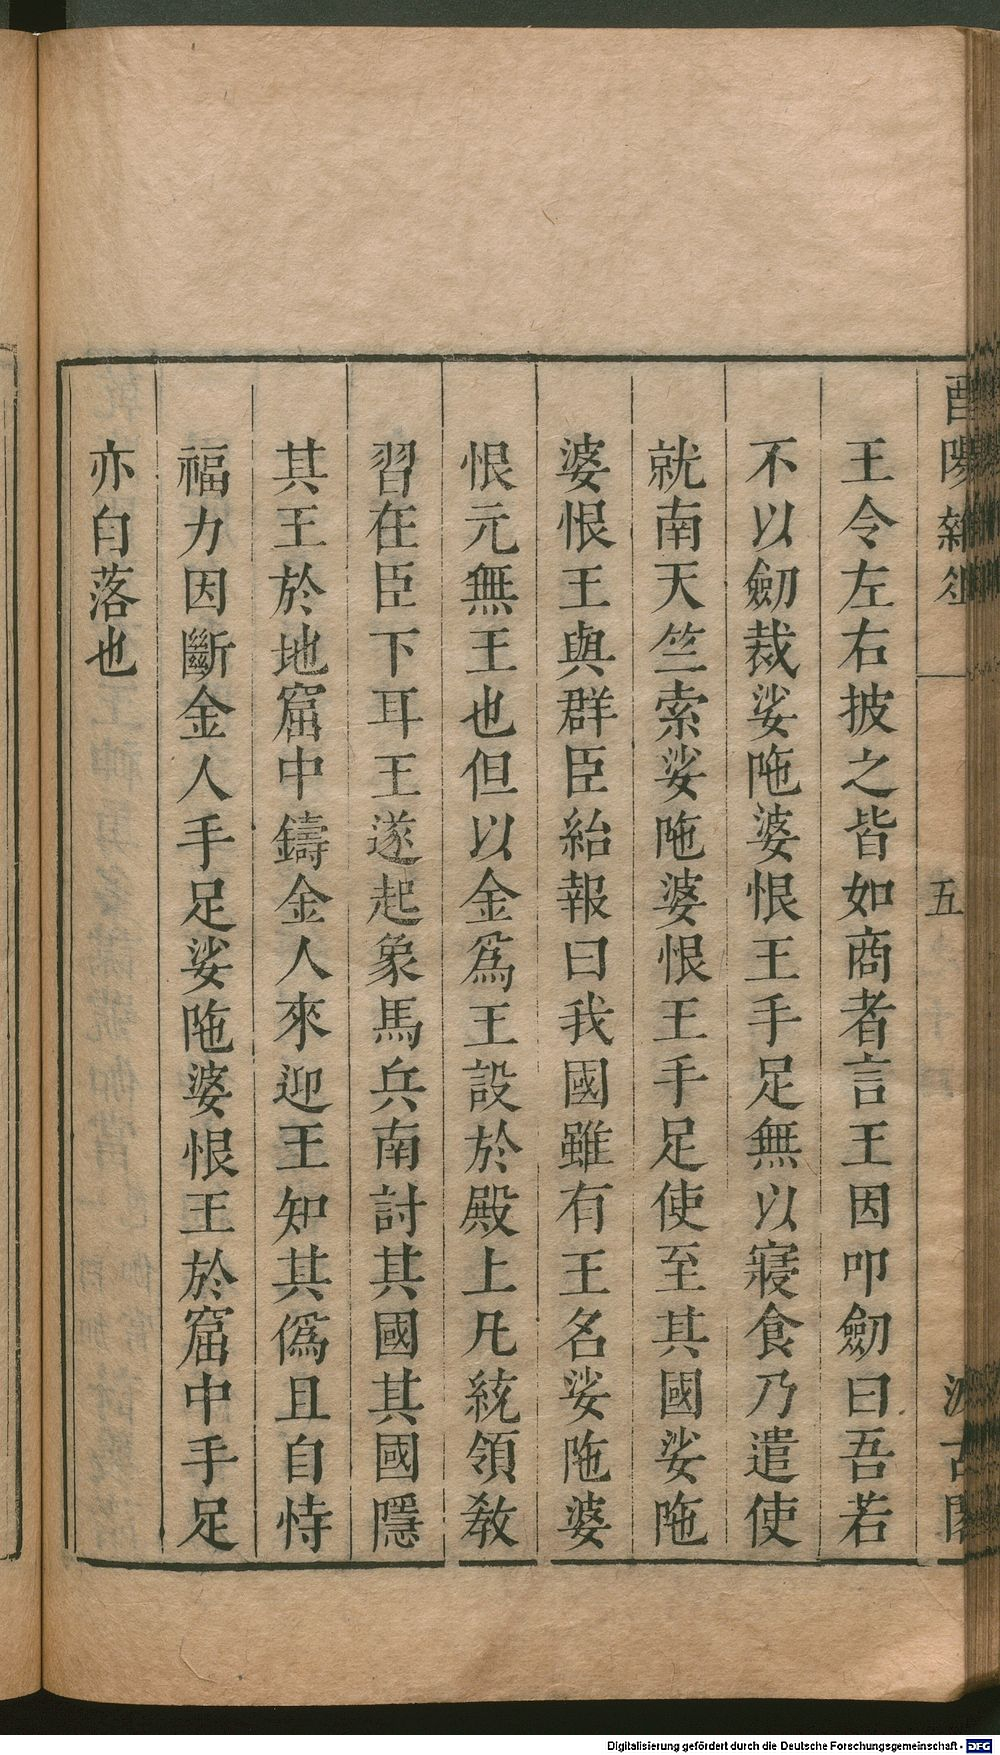 酉陽雜俎
五
汲古閣
王令左右披之皆如商者言王因叩劒曰吾若
不以劒裁娑陁婆恨王手足無以寢食乃遣使
就南天竺索娑陁婆恨王手足使至其國娑陁
婆恨王與群臣紿報曰我國雖有王名娑陁婆
恨元無王也但以金爲王設於殿上凡統領敎
習在臣下耳王遂起象馬兵南討其國其國隱
其王於地窟中鑄金人來迎王知其僞且自恃
福力因斷金人手足娑陁婆恨王於窟中手足
亦自落也
Digitalisierung gefördert durch die Deutsche Forschungsgemeinschaft - DFG